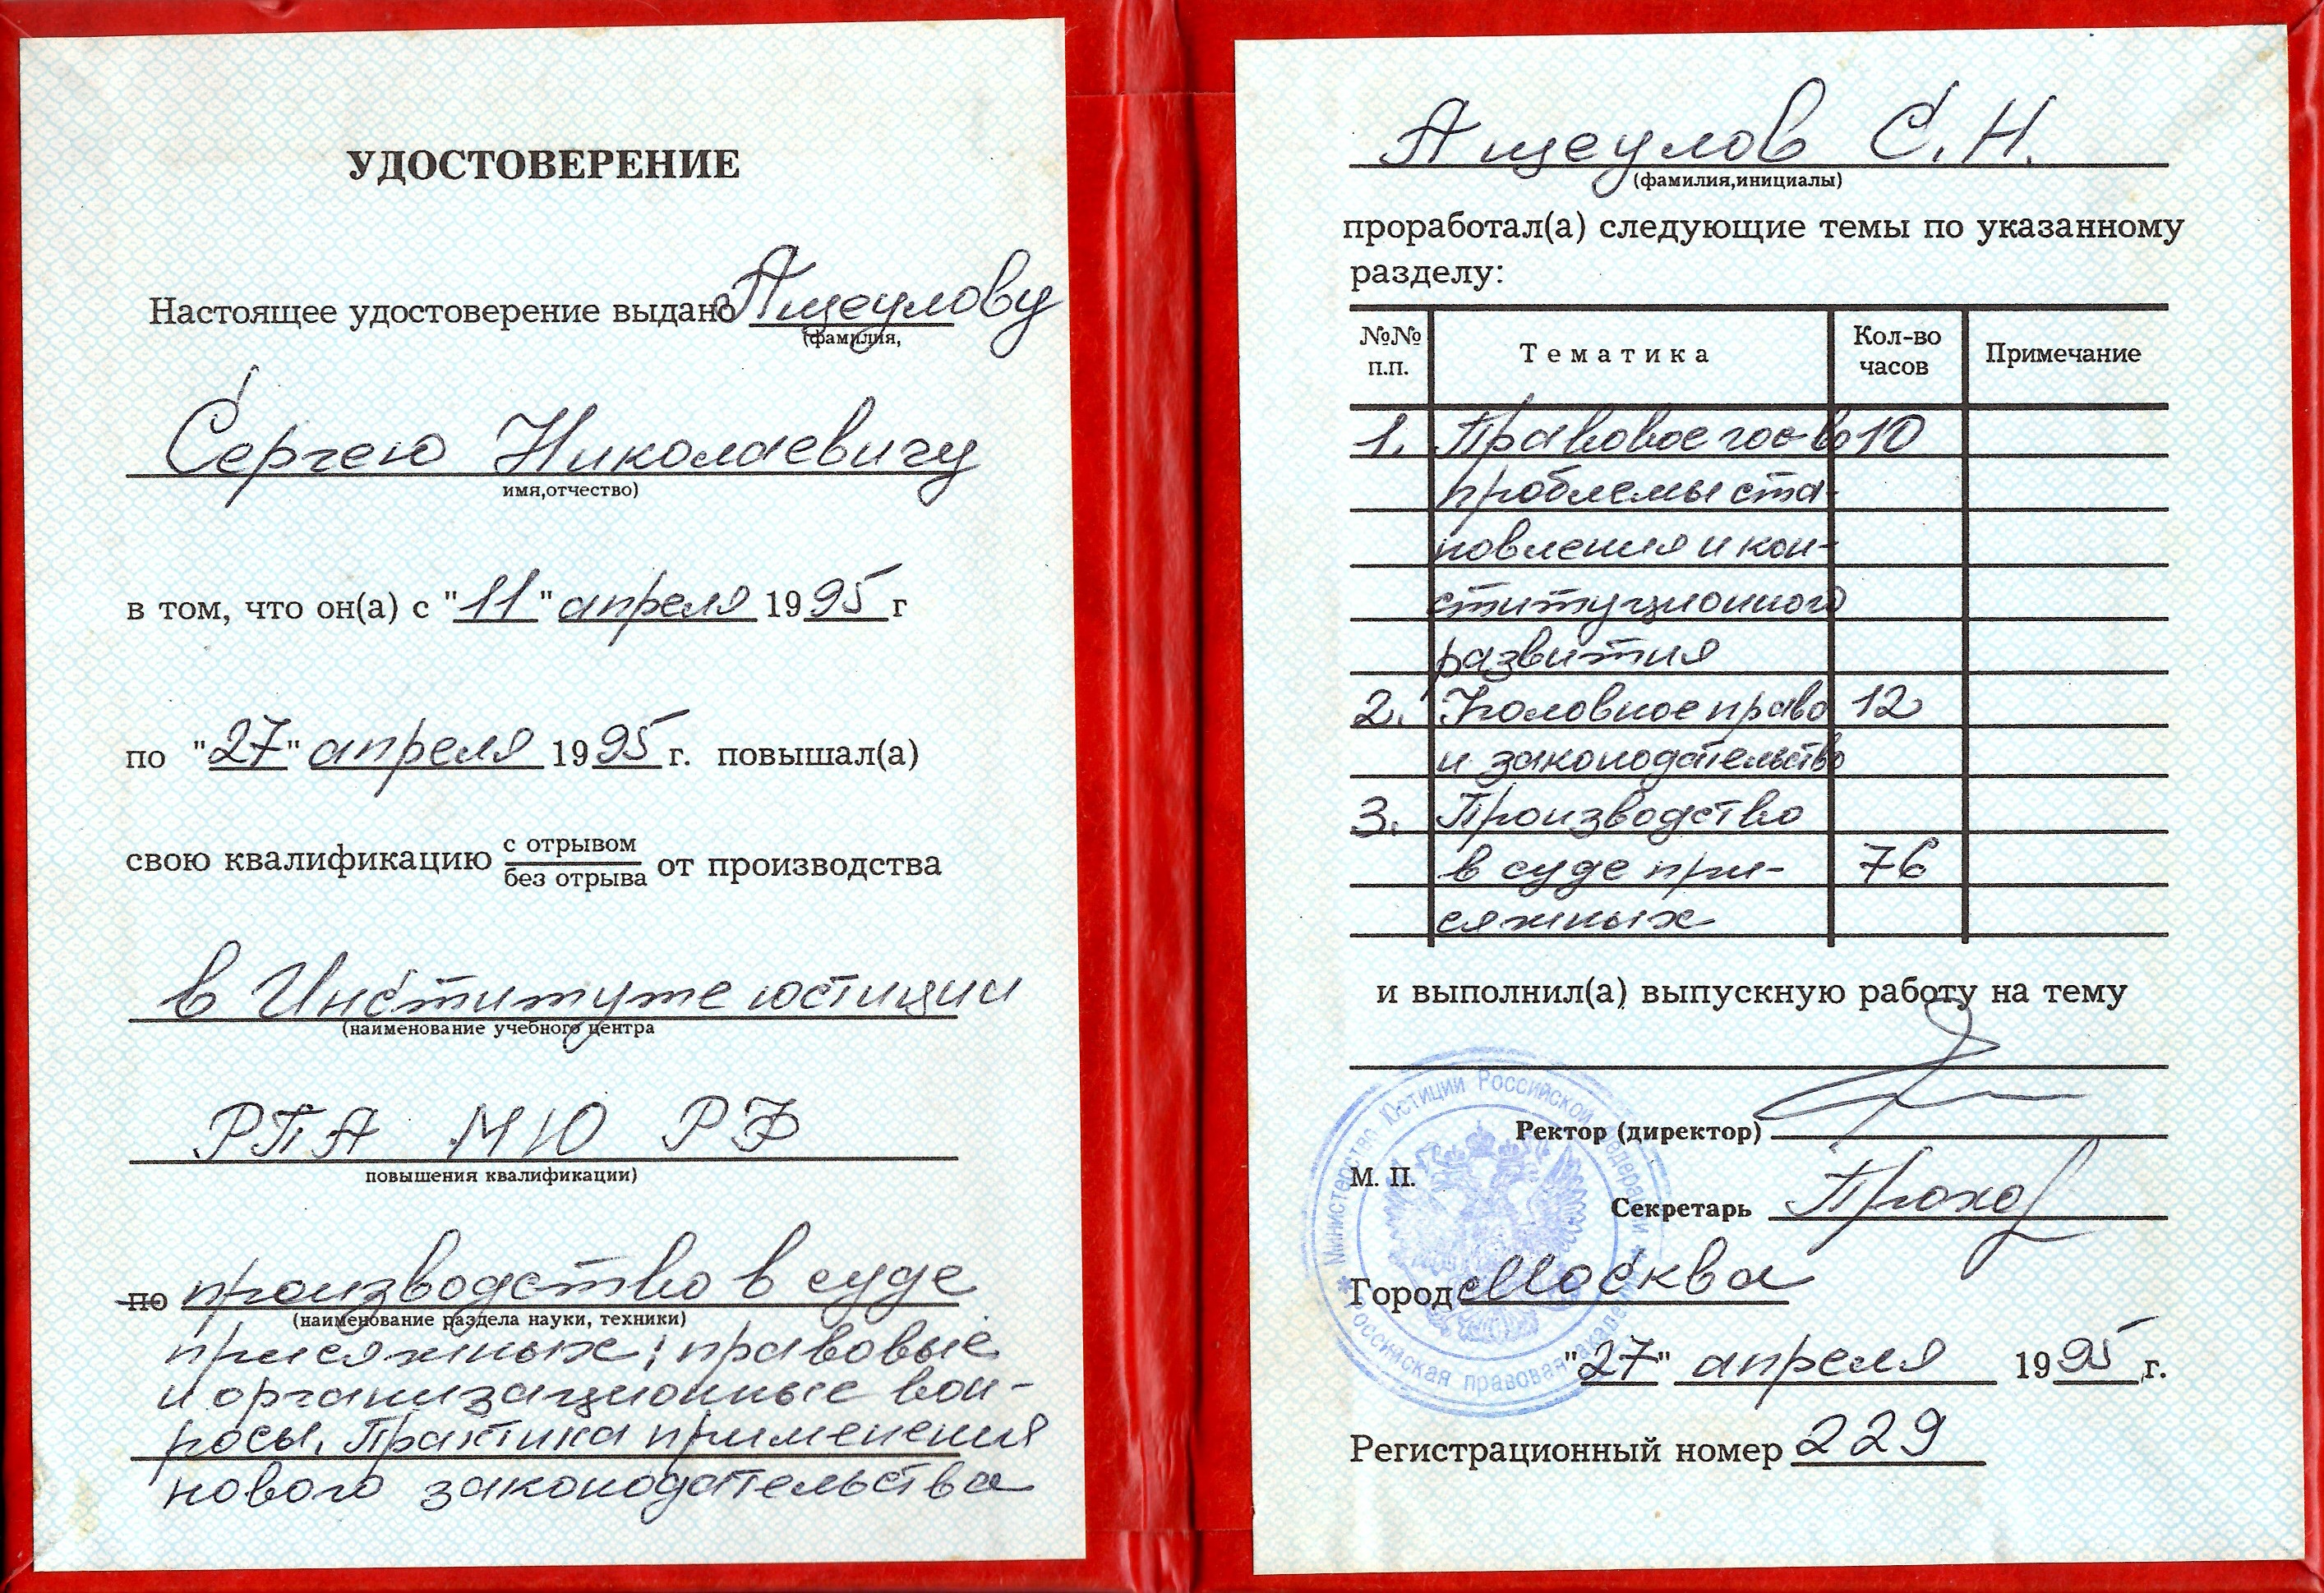 УДОСТОВЕРЕНИЕ
Настоящее удостоверение выдано Ащеулову
(фамилия,
Сергею Николаевичу
имя,отчество)
в том, что он(а) с "11" апреля 1995 г
по "27" апреля 1995 г. повышал(а)
свою квалификацию с отрывом
без отрыва от производства
в Институте юстиции
(наименование учебного центра
РПА МЮ РФ
повышения квалификации)
по производство в суде
(наименование раздела науки, техники)
присяжных; правовые
и организационные воп-
росы. Практика применения
нового законодательства
Ащеулов С. Н.
(фамилия,инициалы)
проработал(а) следующие темы по указанному
разделу:
№№ п.п. Тематика Кол-во часов Примечание
1. Правовое гос-во 10
проблемы ста-
новления и кон-
ституционного
развития
2. Уголовное право 12
и законодательство
3. Производство
в суде при- 76
сяжных
и выполнил(а) выпускную работу на тему
Ректор (директор)
М. П.
Секретарь Прохор
Город Москва
"27" апреля 1995 г.
Регистрационный номер 229
Министерство Юстиции Российской Федерации * Российская правовая академия *